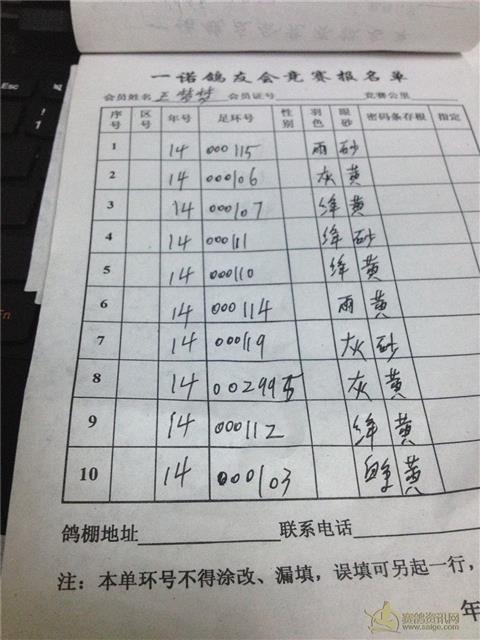 一诺鸽友会竞赛报名单
会员姓名 王梦梦 会员证号 竞赛公里
序号 区号 年号 足环号 性别 羽色 眼砂 密码条存根 指定
1 14 000115 雨 砂
2 14 000106 灰 黄
3 14 000107 绛 黄
4 14 000111 绛 砂
5 14 000110 绛 黄
6 14 000114 雨 黄
7 14 000119 灰 砂
8 14 002995 灰 黄
9 14 000112 绛 黄
10 14 000103 黄
鸽棚地址 联系电话
注：本单环号不得涂改、漏填，误填可另起一行，
年
赛鸽资讯网
www.saige.com
Esc
Fn